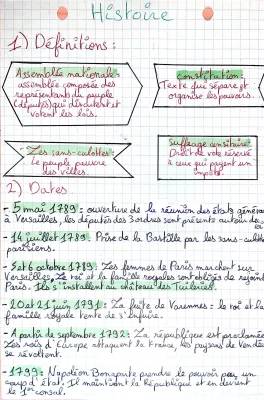 Histoire
1) Définitions :
Assemblée nationale :
assemblée composée des
représentants du peuple
(députés) qui discutent et
votent les lois.
constitution :
Texte qui sépare et
organise les pouvoirs.
Les sans-culottes :
Le peuple pauvre
des villes.
Suffrage censitaire :
Droit de vote réservé
à ceux qui payent un
impôt.
2) Dates
- 5 mai 1789 : ouverture de la réunion des états généraux
à Versailles, les députés des 3 ordres sont présents autour du
- 14 juillet 1789 : Prise de la Bastille par les sans-culottes
parisiens.
- 5 et 6 octobre 1789 : Les femmes de Paris marchent sur
Versailles. Le roi et la famille royale sont obligés de rejoindre
Paris. Ils s'installent au château des Tuileries.
- 20 et 21 juin 1791 : La fuite de Varennes : le roi et la
famille royale tente de s'enfuire.
- A partir de septembre 1792 : La république est proclamée
Les rois d'Europe attaquent la France, les paysans de Vendée
se révoltent.
- 1799 : Napoléon Bonaparte prendre le pouvoir par un
coup d'état. Il maintient la République et en devient
le 1er consul.